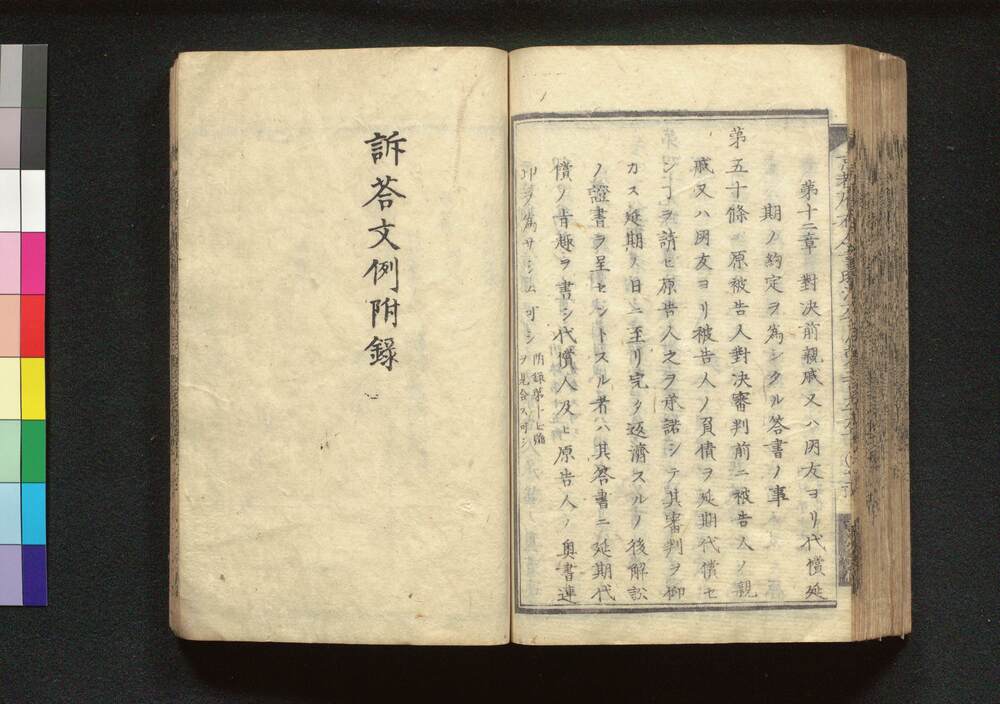 第十二章 對決前親戚又ハ朋友ヨリ代償延
期ノ約定ヲ為シタル答書ノ事
第五十條 原被告人對決審判前ニ被告人ノ親
戚又ハ朋友ヨリ被告人ノ負債ヲ延期代償セ
シヿヲ請ヒ原告人之ヲ承諾シテ其審判ヲ仰
カス延期ノ日ニ至リ完ク返濟スルノ後解訟
ノ證書ヲ呈セントスル者ハ其答書ニ延期代
償ノ旨趣ヲ書シ代償人及ヒ原告人ノ奥書連
印ヲ為サシム可シ
附録第十七號
ヲ見合ス可シ
訴荅文例附錄